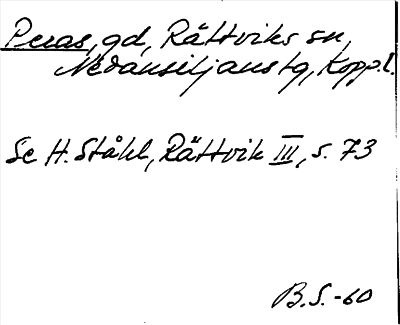 Peras, gd, Rättviks sn,
Nedansiljans tg, Kopp.l.
Se H. Ståhl, Rättvik III, s. 73
B.S. -60